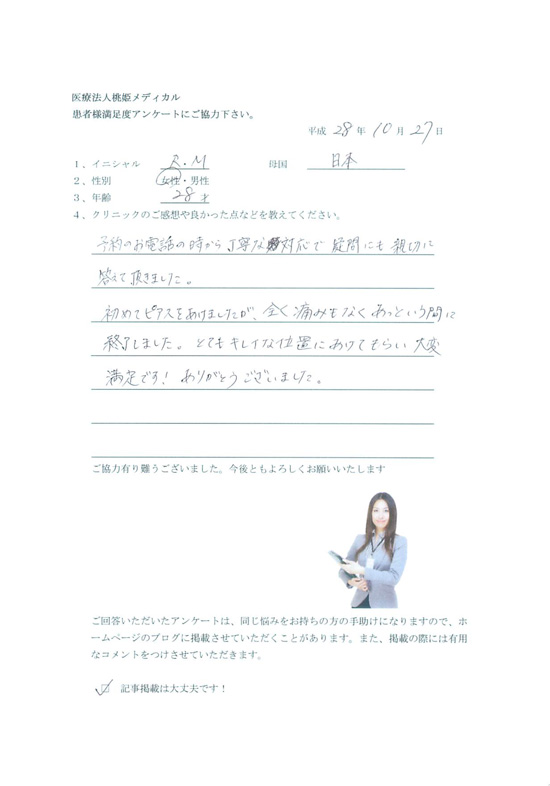 医療法人桃姫メディカル
患者様満足度アンケートにご協力下さい。
平成 28 年 10 月 27 日
1、イニシャル R.M 母国 日本
2、性別 女性・男性
3、年齢 28 才
4、クリニックのご感想や良かった点などを教えてください。
予約のお電話の時から丁寧な対応で 疑問にも 親切に
答えて頂きました。
初めてピアスをあけましたが、全く痛みもなくあっという間に
終了しました。とてもキレイな位置にあけてもらい 大変
満足です! ありがとうございました。
ご協力有り難うございました。今後ともよろしくお願いいたします
ご回答いただいたアンケートは、同じ悩みをお持ちの方の手助けになりますので、ホ
ームページのブログに掲載させていただくことがあります。また、掲載の際には有用
なコメントをつけさせていただきます。
記事掲載は大丈夫です!